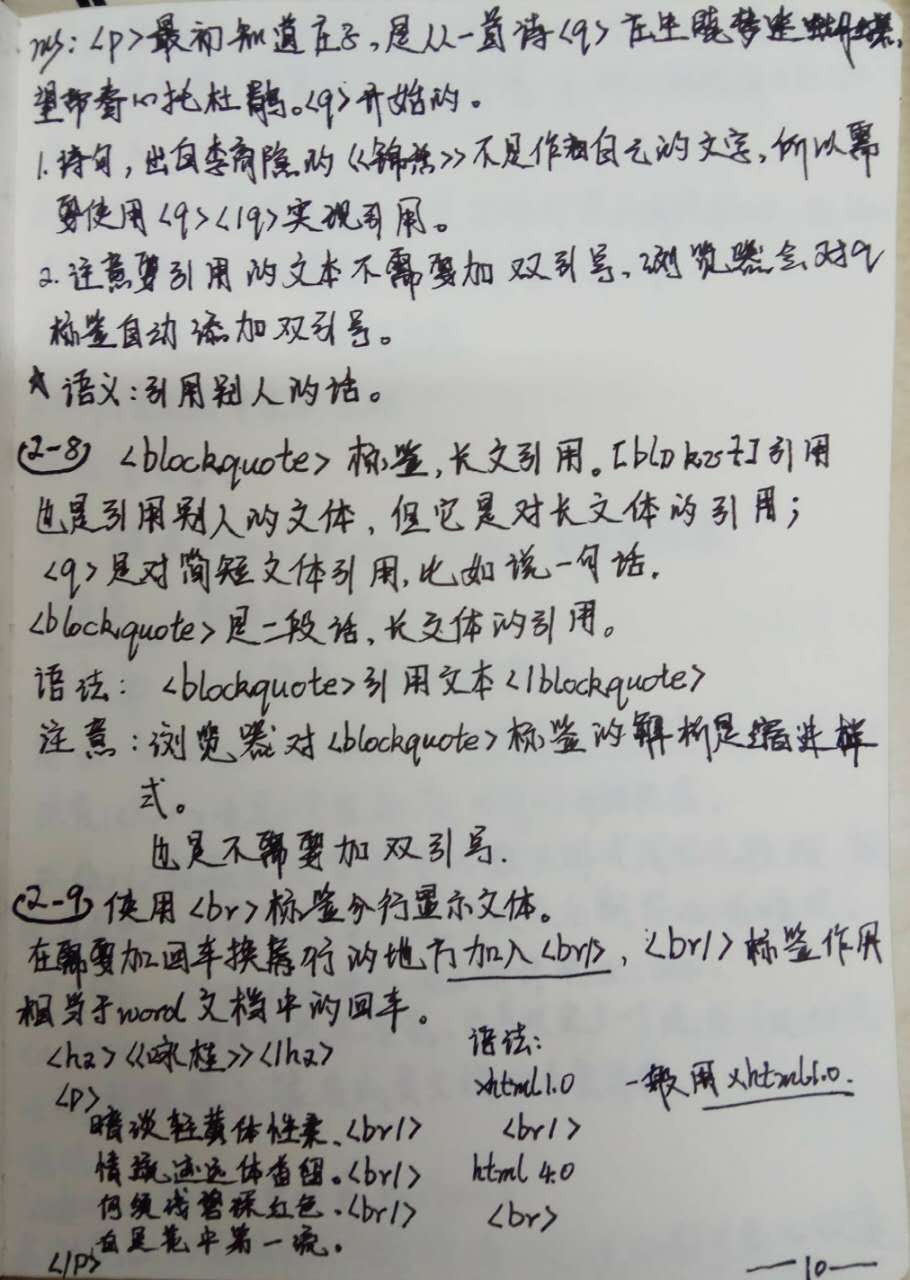 eg: <p>最初知道庄子,是从一首诗<q>庄生晓梦迷蝴蝶,
望帝春心托杜鹃。<q>开始的。
1.诗句,出自李商隐的《锦瑟》不是作者自己的文字,所以需
要使用<q></q>实现引用。
2.注意要引用的文本不需要加双引号,浏览器会对q
标签自动添加双引号。
★语义:引用别人的话。
2-8 <blockquote>标签,长文引用。引用
也是引用别人的文体,但它是对长文体的引用;
<q>是对简短文体引用,比如说一句话.
<blockquote>是一段话,长文体的引用。
语法: <blockquote>引用文本</blockquote>
注意:浏览器对<blockquote>标签的解析是缩进样
式。
也是不需要加双引号.
2-9 使用<br>标签分行显示文体。
在需要加回车换行的地方加入<br/>,<br/>标签作用
相当于word文档中的回车。
<h2>《咏桂》</h2>
<p>
暗淡轻黄体性柔、<br/>
情疏迹远体香留。<br/>
何须浅碧深红色.<br/>
自是花中第一流。
</p>
语法:
xhtml1.0 一般用xhtml1.0.
<br/>
html 4.0
<br>
—10—